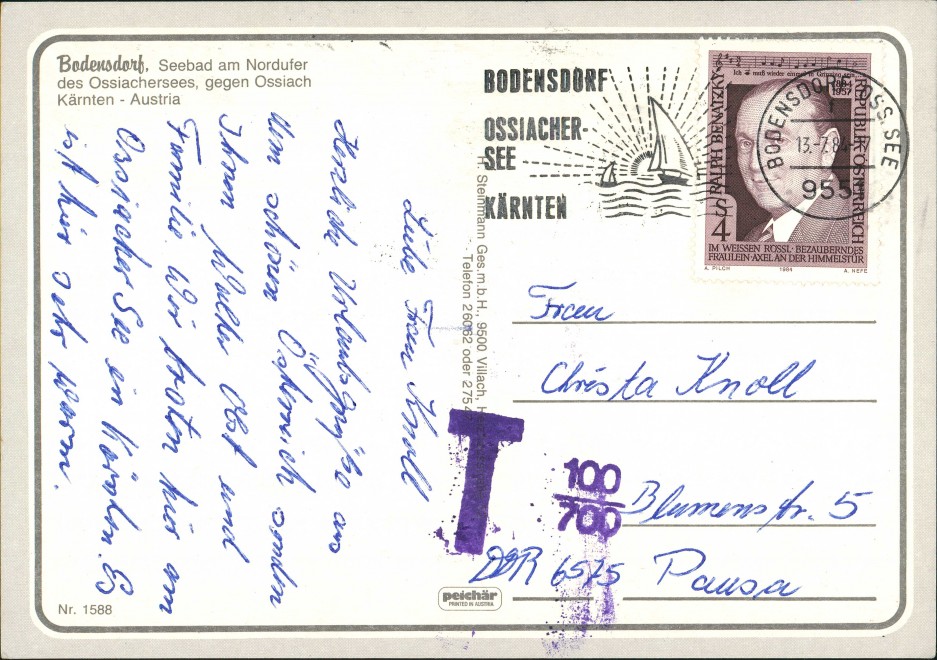 Bodensdorf, Seebad am Nordufer
des Ossiachersees, gegen Ossiach
Kärnten - Austria
Liebe Frau Knoll
Herzliche Urlaubsgrüße aus
dem schönen Österreich senden
Ihnen Walter und
Familie. Wir braten hier am
Ossiacher See in Kärnten. Es
ist hier sehr warm.
Nr. 1588
H. Steinmann Ges.m.b.H., 9500 Villach,
Telefon 26062 oder 2754
BODENSDORF
OSSIACHER-
SEE
KÄRNTEN
Ich muß wieder einmal in Grinzing sein
RALPH BENATZKY
1884
1957
REPUBLIK ÖSTERREICH
S 4
IM WEISSEN RÖSSL·BEZAUBERNDES
FRÄULEIN·AXEL AN DER HIMMELSTÜR
A. PILCH 1984 A. NEFE
BODENSDORF OSS. SEE
13.-7.84
955
Frau
Christa Knoll
T
100
700
Blumenstr. 5
DDR 6575 Pausa
peichär
PRINTED IN AUSTRIA